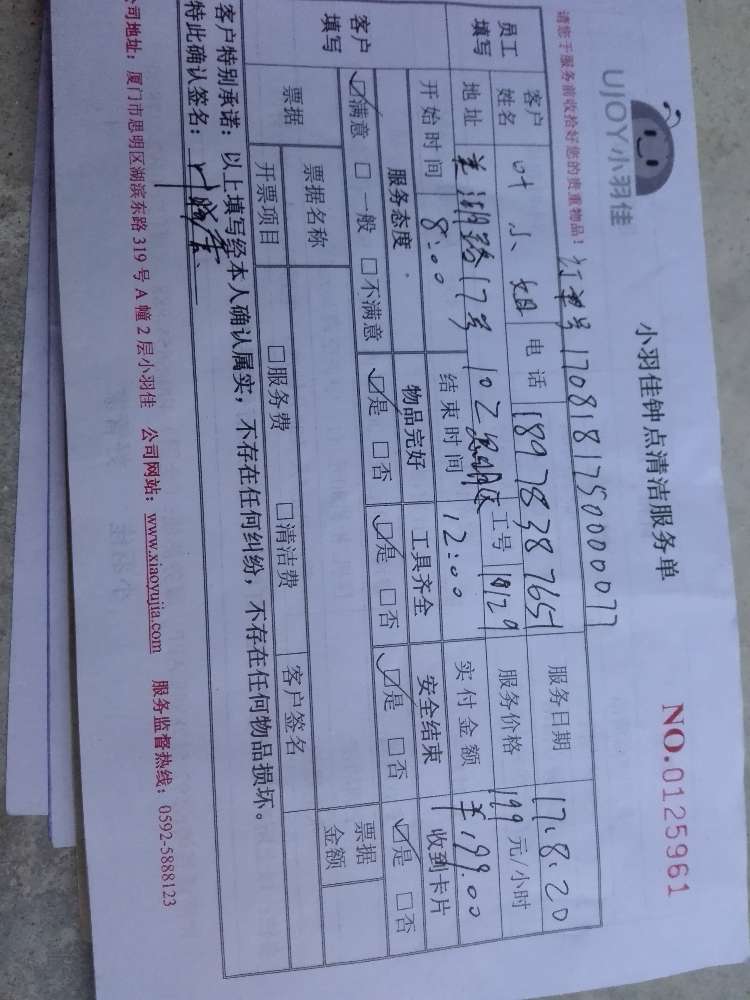 UJOY小羽佳
小羽佳钟点清洁服务单
NO.0125961
请您于服务前收拾好您的贵重物品！ 订单号 17081817500000077
员工填写 客户姓名 叶小姐 电话 18978387651 服务日期 17.8.20
地址 美湖路17号102 工号 18129 服务价格 199元/小时
开始时间 8:00 结束时间 12:00 实付金额 ¥199.00
客户填写 服务态度 物品完好 工具齐全 安全结束 收到卡片
☑满意 □一般 □不满意 ☑是 □否 ☑是 □否 ☑是 □否 ☑是 □否
票据 票据名称 客户签名 票据金额
开票项目 □服务费 □清洁费
客户特别承诺：以上填写经本人确认属实，不存在任何纠纷，不存在任何物品损坏。
特此确认签名：
公司地址：厦门市思明区湖滨东路319号A幢2层小羽佳 公司网站：www.xiaoyujia.com 服务监督热线：0592-5888123